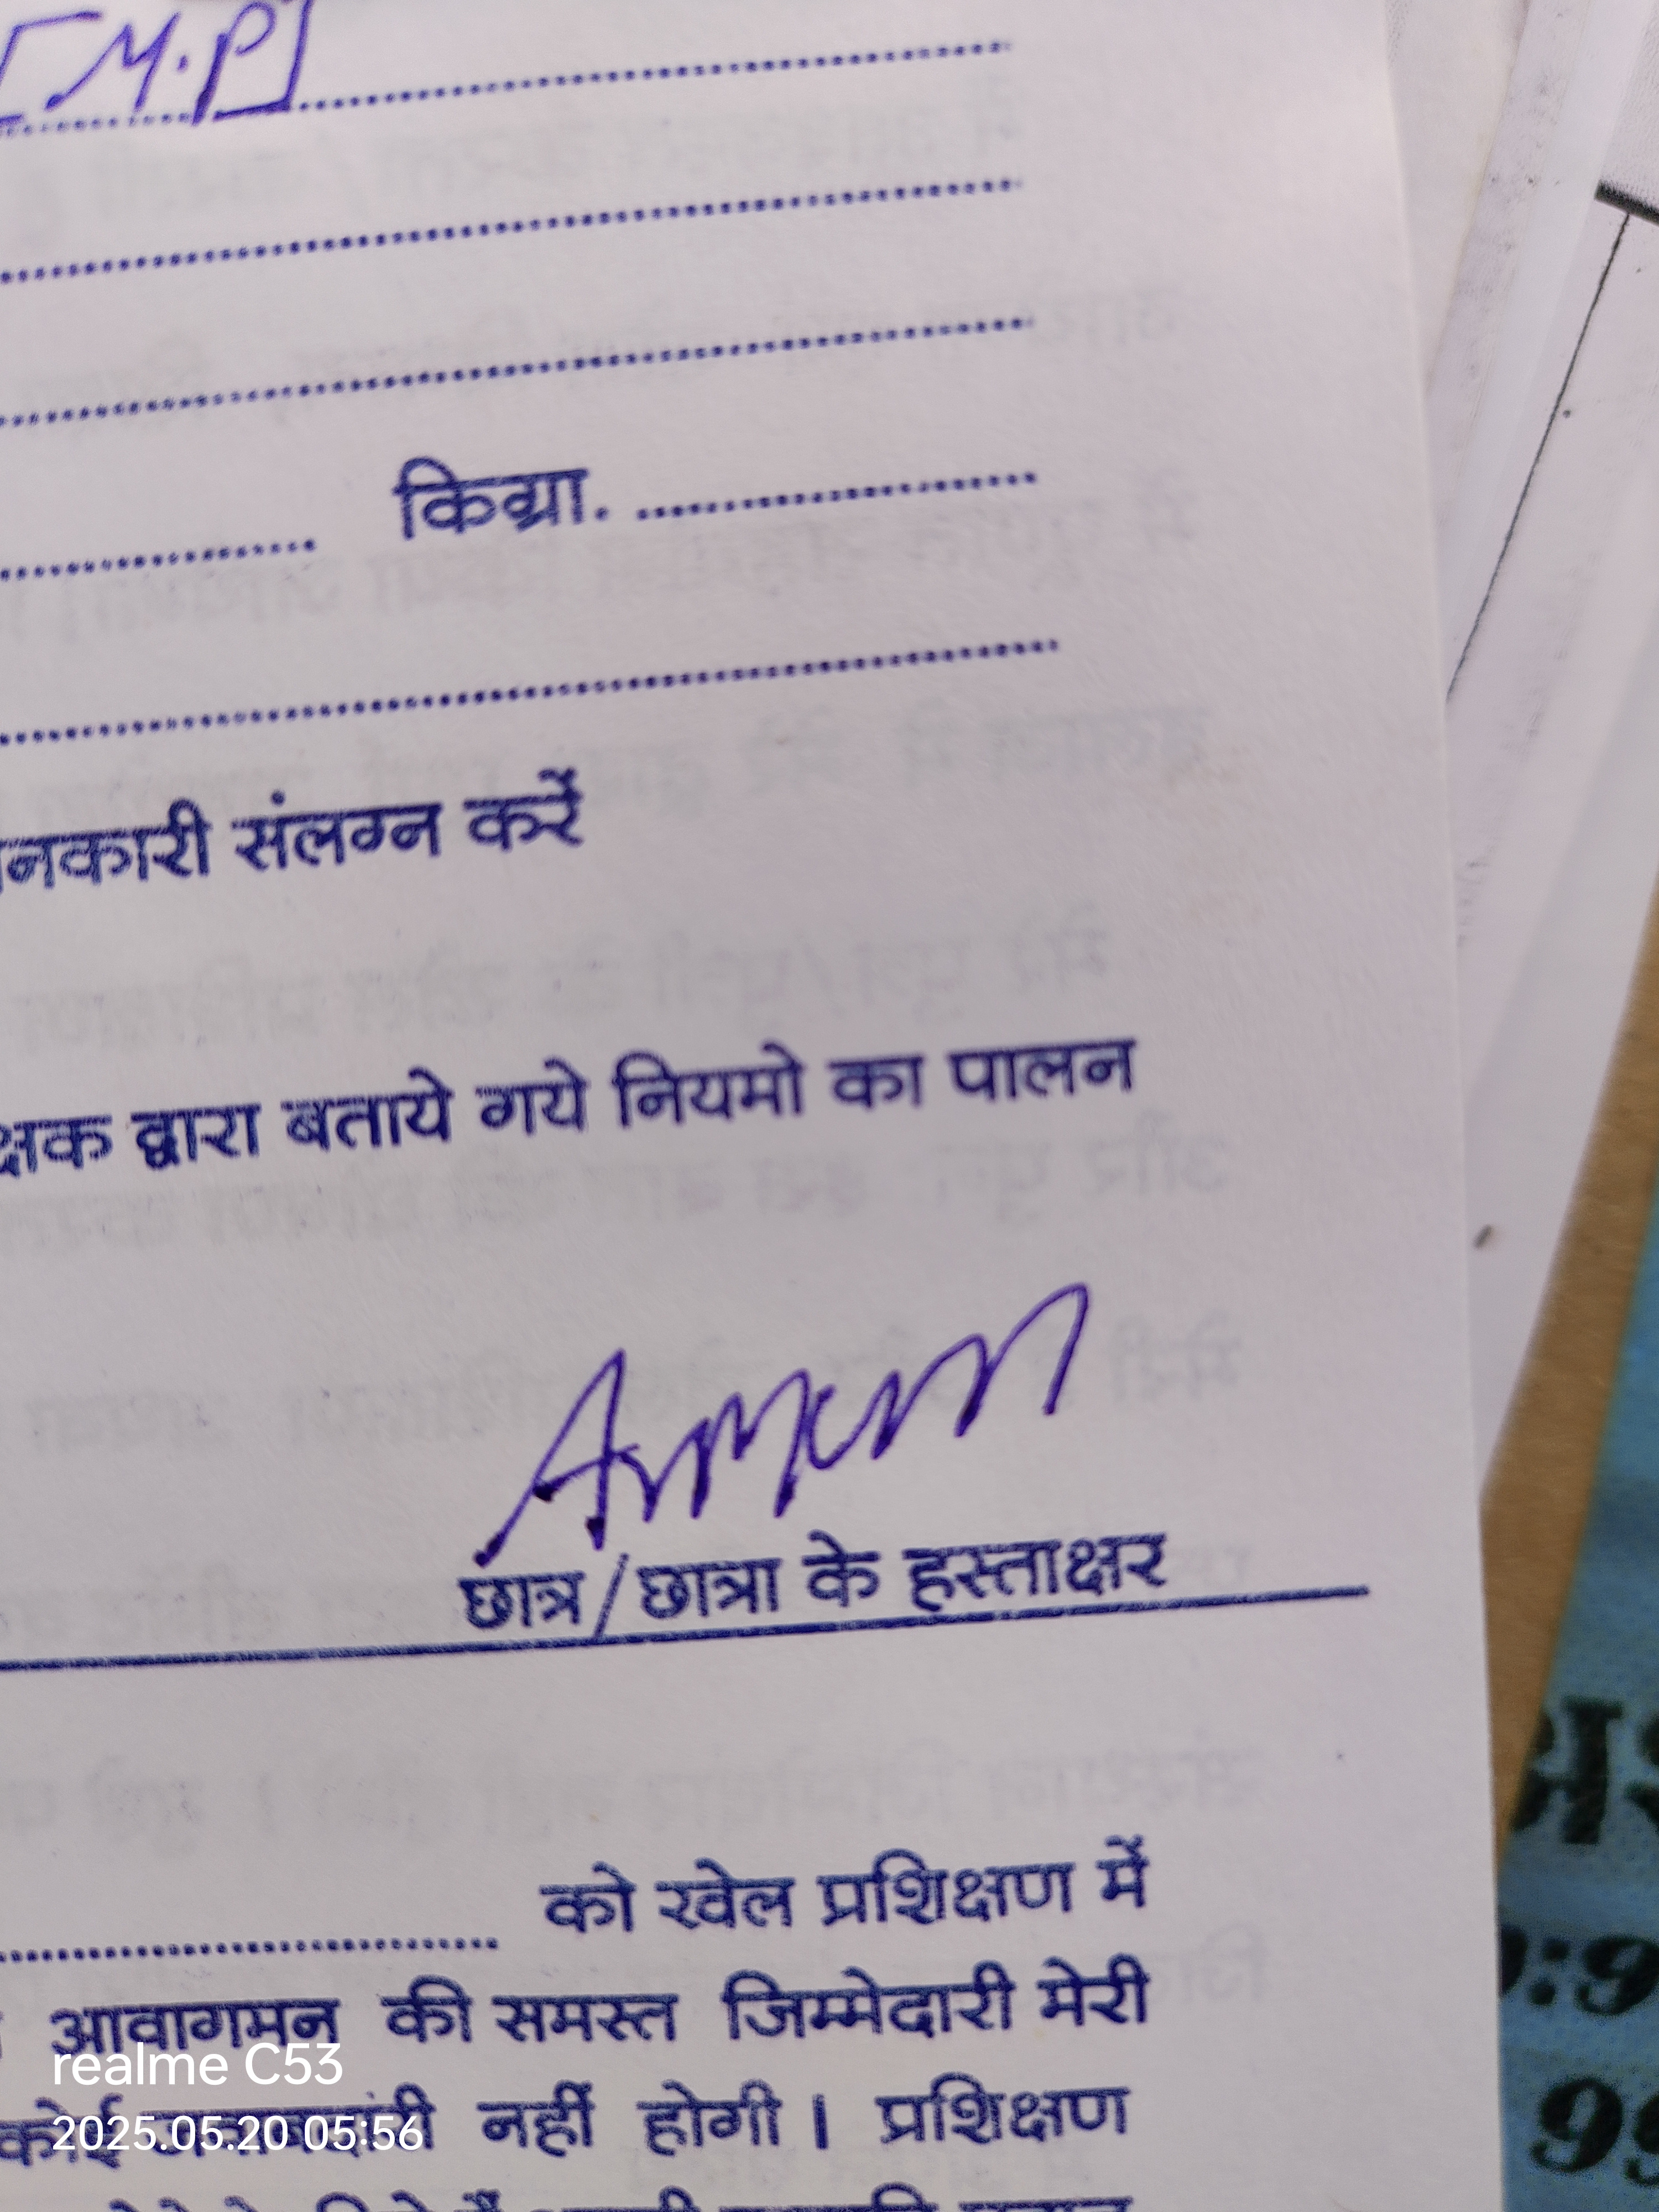 [M.P]
किग्रा.
नकारी संलग्न करें
क्षक द्वारा बताये गये नियमो का पालन
Aman
छात्र/छात्रा के हस्ताक्षर
को खेल प्रशिक्षण में
आवागमन की समस्त जिम्मेदारी मेरी
realme C53
कोई नहीं होगी। प्रशिक्षण
2025.05.20 05:56